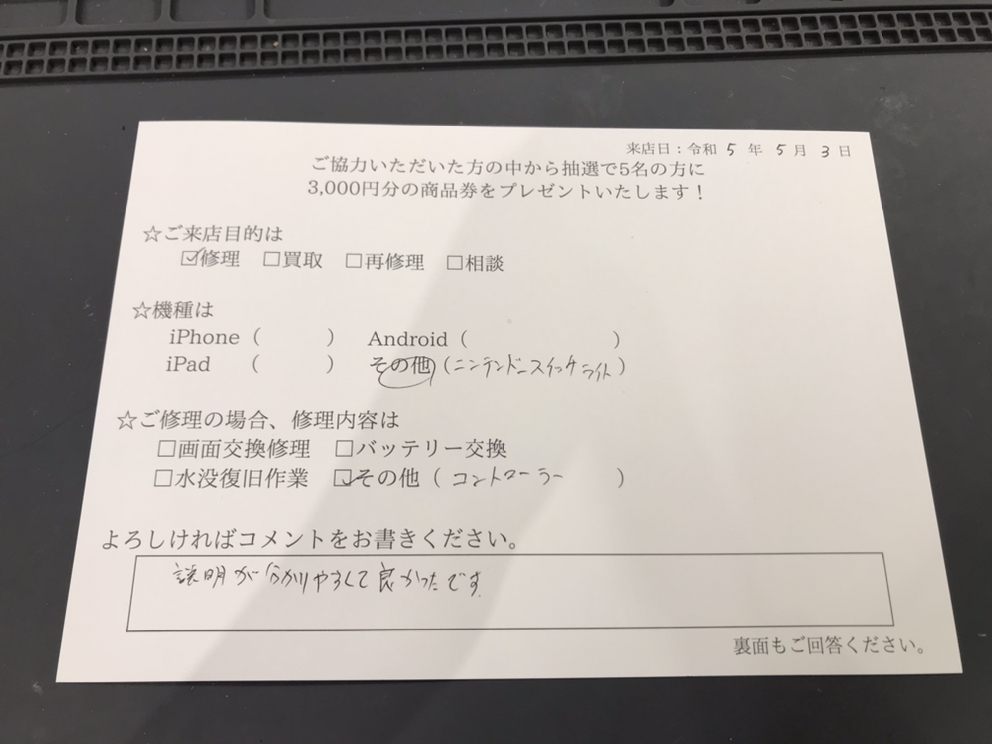 来店日：令和 5 年 5 月 3 日
ご協力いただいた方の中から抽選で5名の方に
3,000円分の商品券をプレゼントいたします！
☆ご来店目的は
☑修理 □買取 □再修理 □相談
☆機種は
iPhone（ ） Android（ ）
iPad （ ） その他（ニンテンドースイッチ ライト）
☆ご修理の場合、修理内容は
□画面交換修理 □バッテリー交換
□水没復旧作業 ☑その他（コントローラー ）
よろしければコメントをお書きください。
説明が分かりやすくて良かったです
裏面もご回答ください。